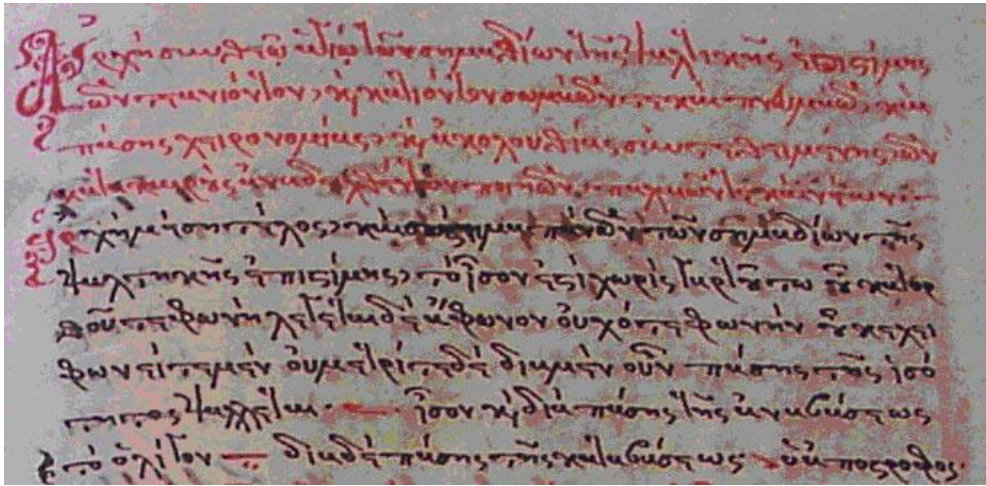 Ἀρχὴ σὺν θεῶ ἁγίω τῶν σημαδίων τῆς ψαλτικῆς ἐπιστίμης
τῶν τε ἀνιόντον, καὶ κατιόντον σωμάτων τε καὶ πνευμάτων, καὶ
πάσης χειρονομίας, καὶ ἀκολουθίας συντεθειμένης, τῶν
κατα καιροὺς ἀναδειχθέντον ποιητῶν, παλαιῶν τε καὶ νέων.
ἀρχὴ μέση τέλος, καὶ σύστημα πάντων τῶν σημαδίων τῆς
ψαλτηκῆς ἐπιστίμης, τὸ ἴσον ἐστὶ χωρὶς γὰρ τούτου οὐ κατορ
θοῦτε φωνή λέγεται δὲ ἄφωνον οὐχ ὅτε φωνὴν οὐκ ἔχει
φωνεῖτε μὲν οὐ μετρίτε δέ διὰ μὲν οὖν πάσης τῆς ἰσό
τητος ψάλλεται. ἴσον καὶ διὰ πάσης τῆς ἀναβάσεως
τὸ ὀλίγον διὰ δὲ πάσης τῆς καταβάσεως ὁ ἀπόστροφος.